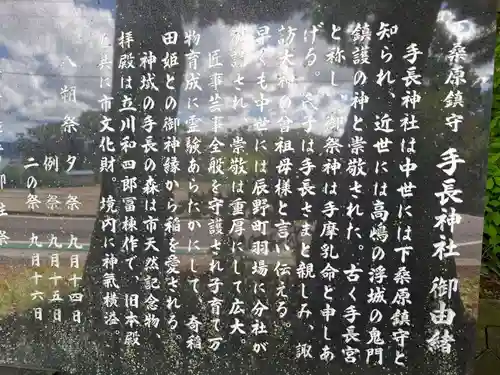 下桑原鎮守 手長神社 御由緒
手長神社は中世には下桑原鎮守と
知られ、近世には高嶋の浮城の鬼門
鎮護の神と崇敬された。古く手長宮
と称し、御祭神は手摩乳命と申しあ
げる。氏子は手長さまと親しみ、諏
訪大神の曽祖母様と言い伝える。
早くも中世には辰野町羽場に分社が
され、崇敬は重厚にして広大。
匠事芸事全般を守護され子育て万
物育成に霊験あらたかにして、奇稲
田姫との御神縁から稲を愛される。
神域の手長の森は市天然記念物、
拝殿は立川和四郎冨棟作で、旧本殿
共に市文化財。境内に神氣横溢。
八朔祭 夕祭 九月十四日
例祭 九月十五日
二の祭 九月十六日